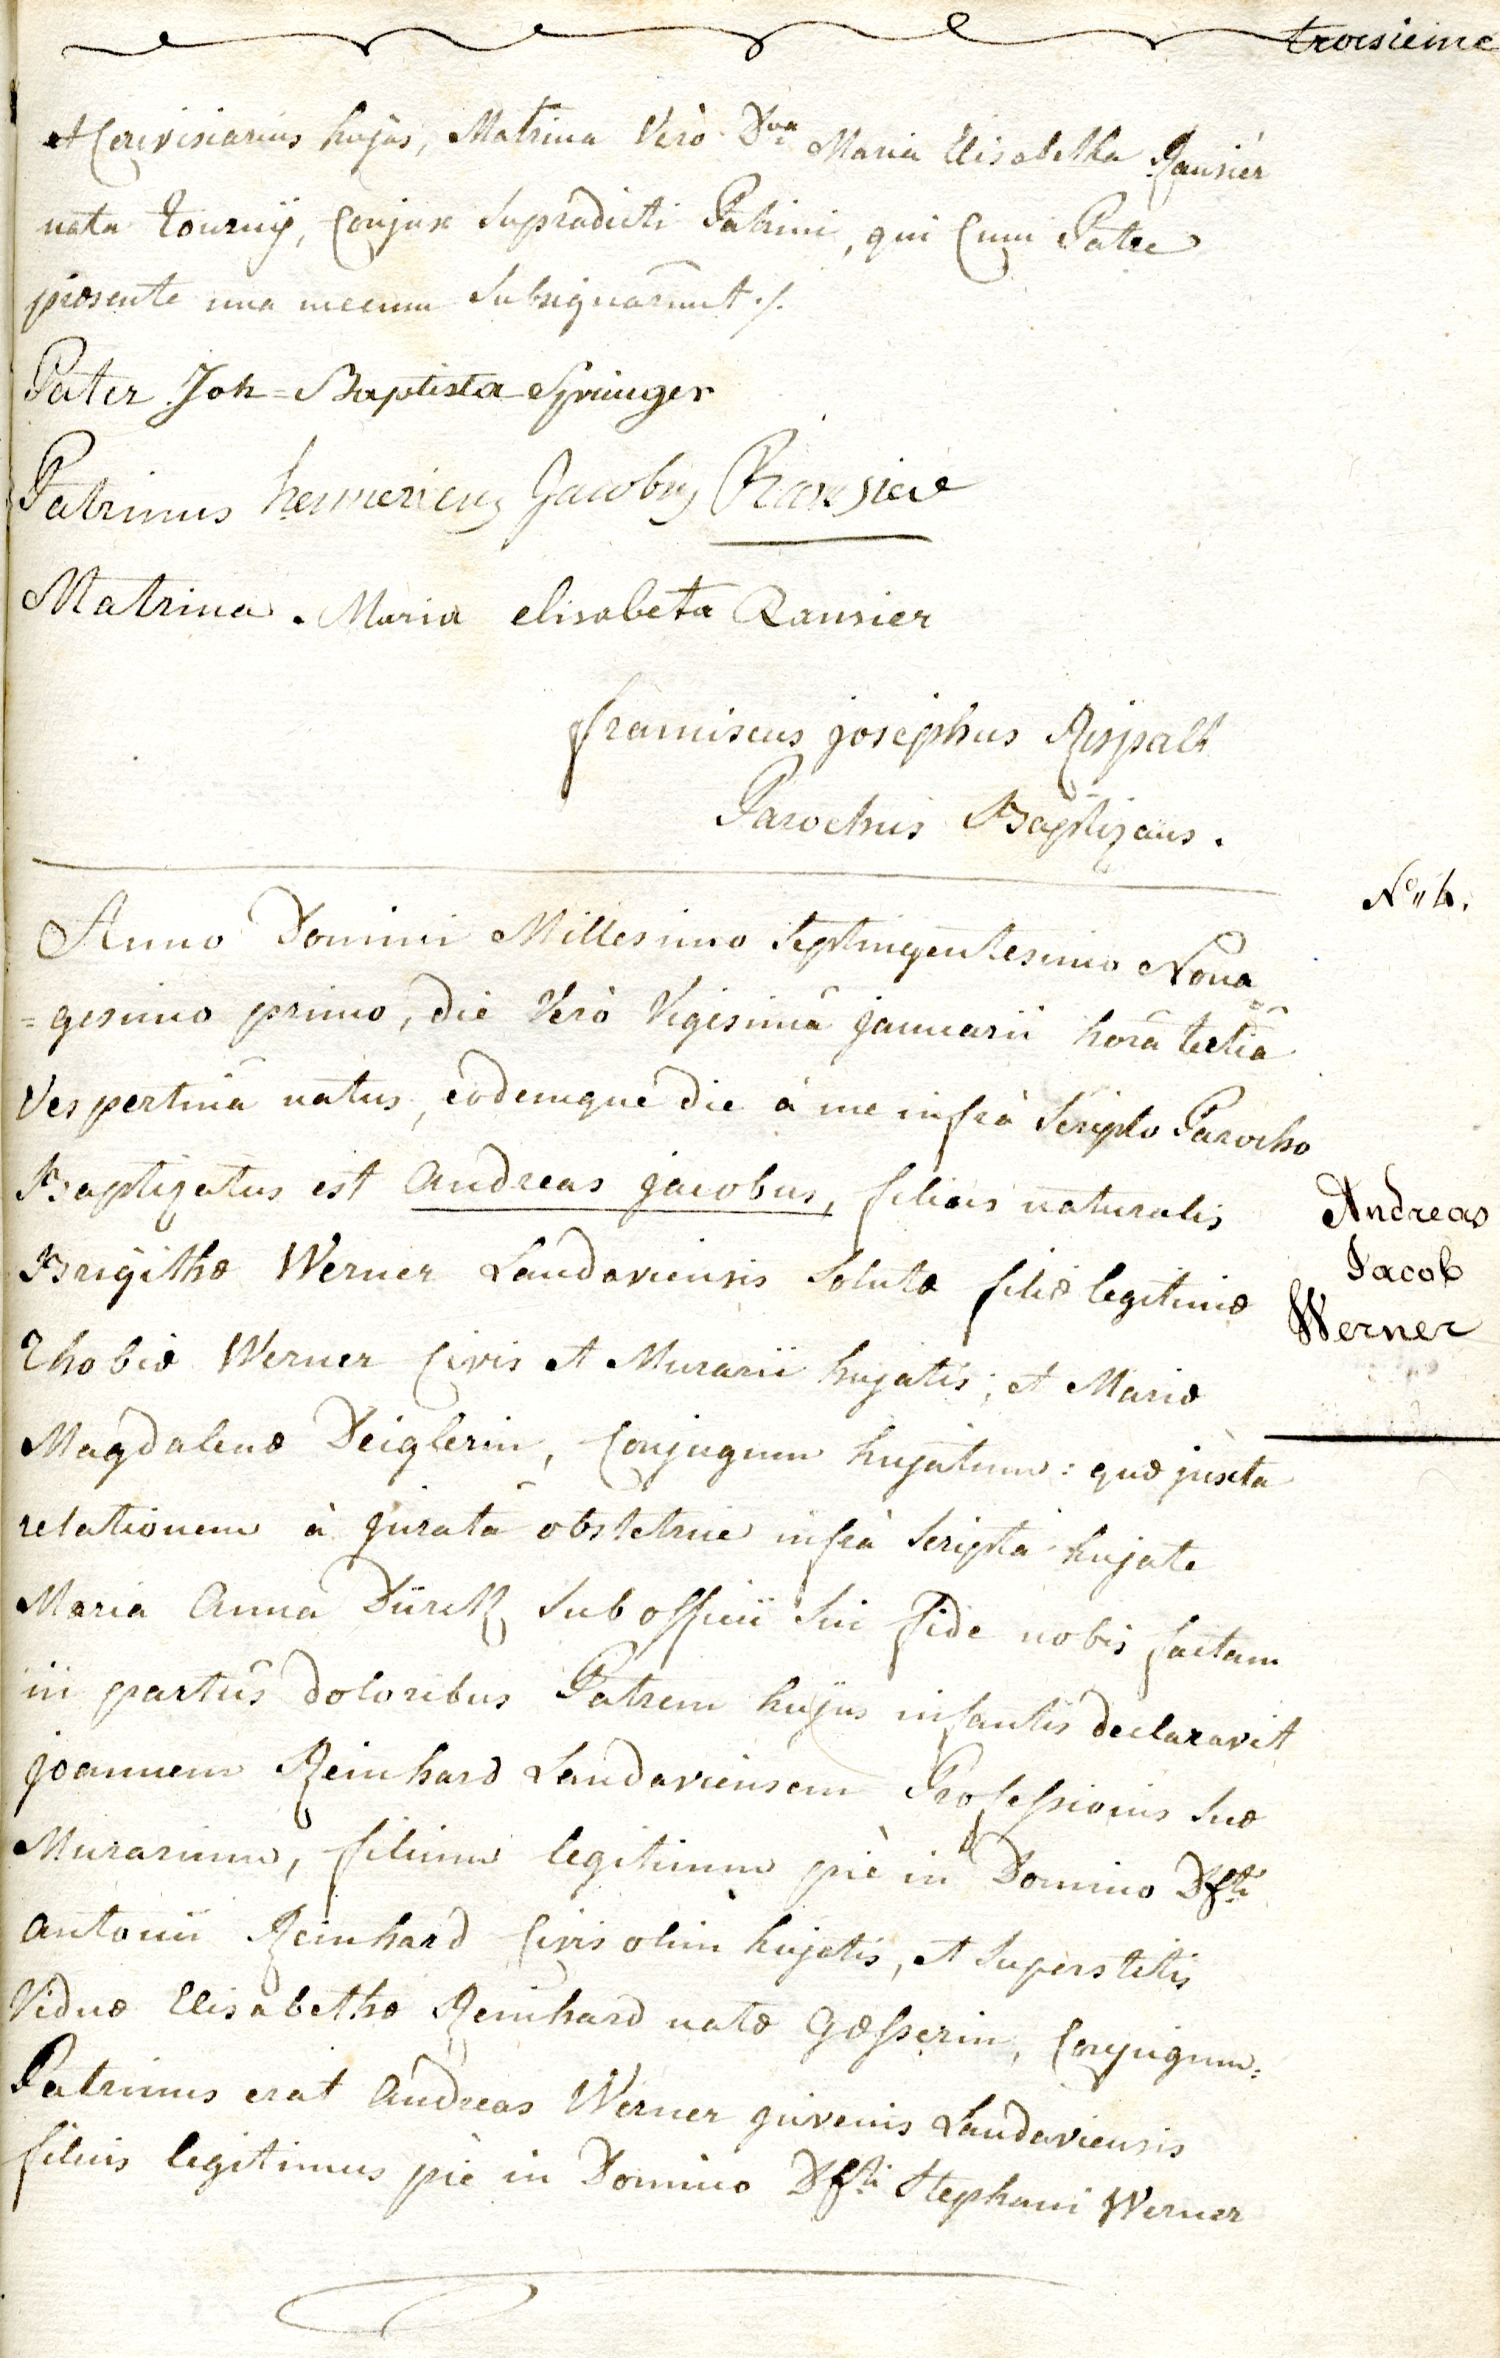 troisieme
et Cerevisiarius hujas, Matrina Verò Dna Maria Elisabetha Ransier
nata Tourny, Conjux Supradicti Patrini, qui Cum Patre
præsente una mecum Subsignarunt ./.
Pater Joh=Baptista Springer
Patrinus henericus Jacobus Ransier
Matrina. Maria elisabeta Ransier
franciscus josephus Rispalt
Parochus Baptizans.
No 4.
Anno Domini Millesimo Septingentesimo Nona
=gesimo primo, die Verò Vigesimâ januarii horâ tertiâ
Vespertinâ natus, eodemque die à me infrà Scripto Parocho
Baptizatus est andreas jacobus, filius naturalis
Andreas
Jacob
Werner
Brigithæ Werner Landaviensis Solutæ filiæ legitimæ
Thobiæ Werner Civis et Murarii hujatis; et Mariæ
Magdalenæ Deiglerin, Conjugum hujatum: quæ juxta
relationem à juratâ obstetrice infrà Scriptâ hujate
Maria Anna Dürck, Sub officii Sui fide nobis factam
in partûs doloribus Patrem hujus infantis declaravit
joannem Reinhard Landaviensem Professionis Suæ
Murarium, filium legitimum piè in Domino Dfcti
antonii Reinhard Civis olim hujatis, et Superstitis
Viduæ Elisabethæ Reinhard natæ Gæsserin, Conjugum:
Patrinus erat andreas Werner juvenis Landaviensis
filius legitimus piè in Domino Dfcti Stephani Werner